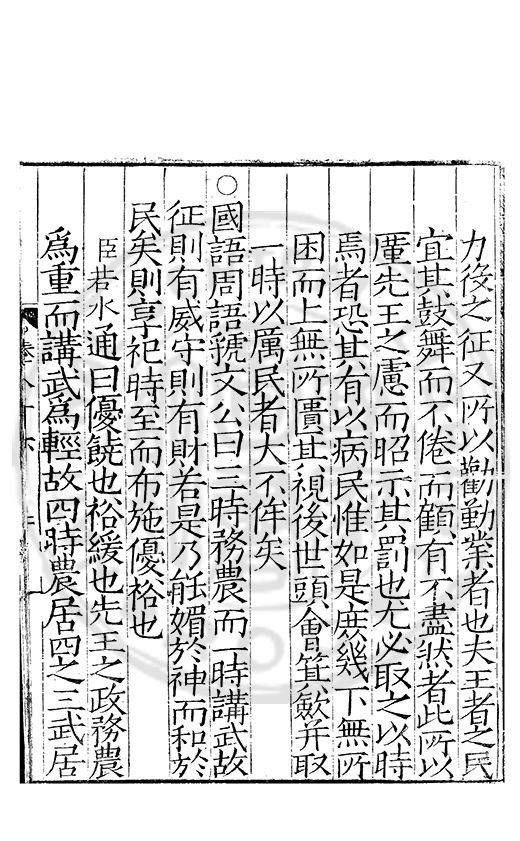 力役之征又所以勸勤業者也夫王者之民
宜其鼓舞而不倦而顧有不盡然者此所以
厪先王之慮而昭示其罰也尤必取之以時
焉者恐其有以病民惟如是庶幾下無所
困而上無所匱其視後世頭會箕歛并取
一時以厲民者大不侔矣
○國語周語虢文公曰三時務農而一時講武故
征則有威守則有財若是乃能媚於神而和於
民矣則享祀時至而布施優裕也
臣若水通曰優饒也裕緩也先王之政務農
為重而講武為輕故四時農居四之三武居
卷八十六